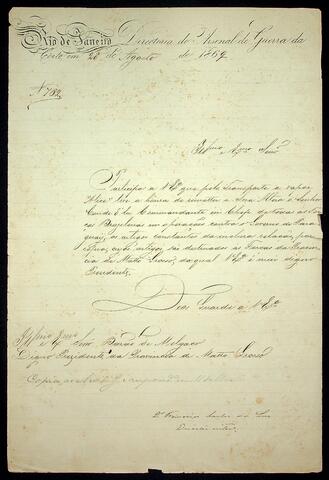 Rio de Janeiro Directoria do Arsenal de Guerra da
Corte em 26 de Agosto de 1869
Nº 782
Illmo e Exmo Senr
Participo a V Exª que pelo transporte a vapor
tive a honra de remetter a Sua Alteza o Senhor
Conde d'Eu Commandante em Chefe de todas as for
ças Brazileiras em operações contra o Governo do Para
guai, os artigos constantes da inclusa relação, por
copia, cujos artigos são destinados as Forças da Provin
cia de Matto Grosso, da qual V Exª é mui digno
Presidente.
Deos Guarde a V Exª
Illmo e Exmo Senr Barão de Melgaço
Digno Presidente da Provincia de Matto Grosso